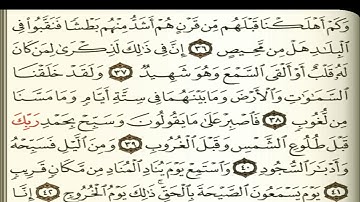 وَكَمْ أَهْلَكْنَا قَبْلَهُم مِّن قَرْنٍ هُمْ أَشَدُّ مِنْهُم بَطْشًا فَنَقَّبُوا۟ فِى
ٱلْبِلَٰدِ هَلْ مِن مَّحِيصٍ ٣٦ إِنَّ فِى ذَٰلِكَ لَذِكْرَىٰ لِمَن كَانَ
لَهُۥ قَلْبٌ أَوْ أَلْقَى ٱلسَّمْعَ وَهُوَ شَهِيدٌ ٣٧ وَلَقَدْ خَلَقْنَا
ٱلسَّمَٰوَٰتِ وَٱلْأَرْضَ وَمَا بَيْنَهُمَا فِى سِتَّةِ أَيَّامٍ وَمَا مَسَّنَا
مِن لُّغُوبٍ ٣٨ فَٱصْبِرْ عَلَىٰ مَا يَقُولُونَ وَسَبِّحْ بِحَمْدِ رَبِّكَ
قَبْلَ طُلُوعِ ٱلشَّمْسِ وَقَبْلَ ٱلْغُرُوبِ ٣٩ وَمِنَ ٱلَّيْلِ فَسَبِّحْهُ
وَأَدْبَٰرَ ٱلسُّجُودِ ٤٠ وَٱسْتَمِعْ يَوْمَ يُنَادِ ٱلْمُنَادِ مِن مَّكَانٍ قَرِيبٍ
٤١ يَوْمَ يَسْمَعُونَ ٱلصَّيْحَةَ بِٱلْحَقِّ ۚ ذَٰلِكَ يَوْمُ ٱلْخُرُوجِ ٤٢ إِنَّا